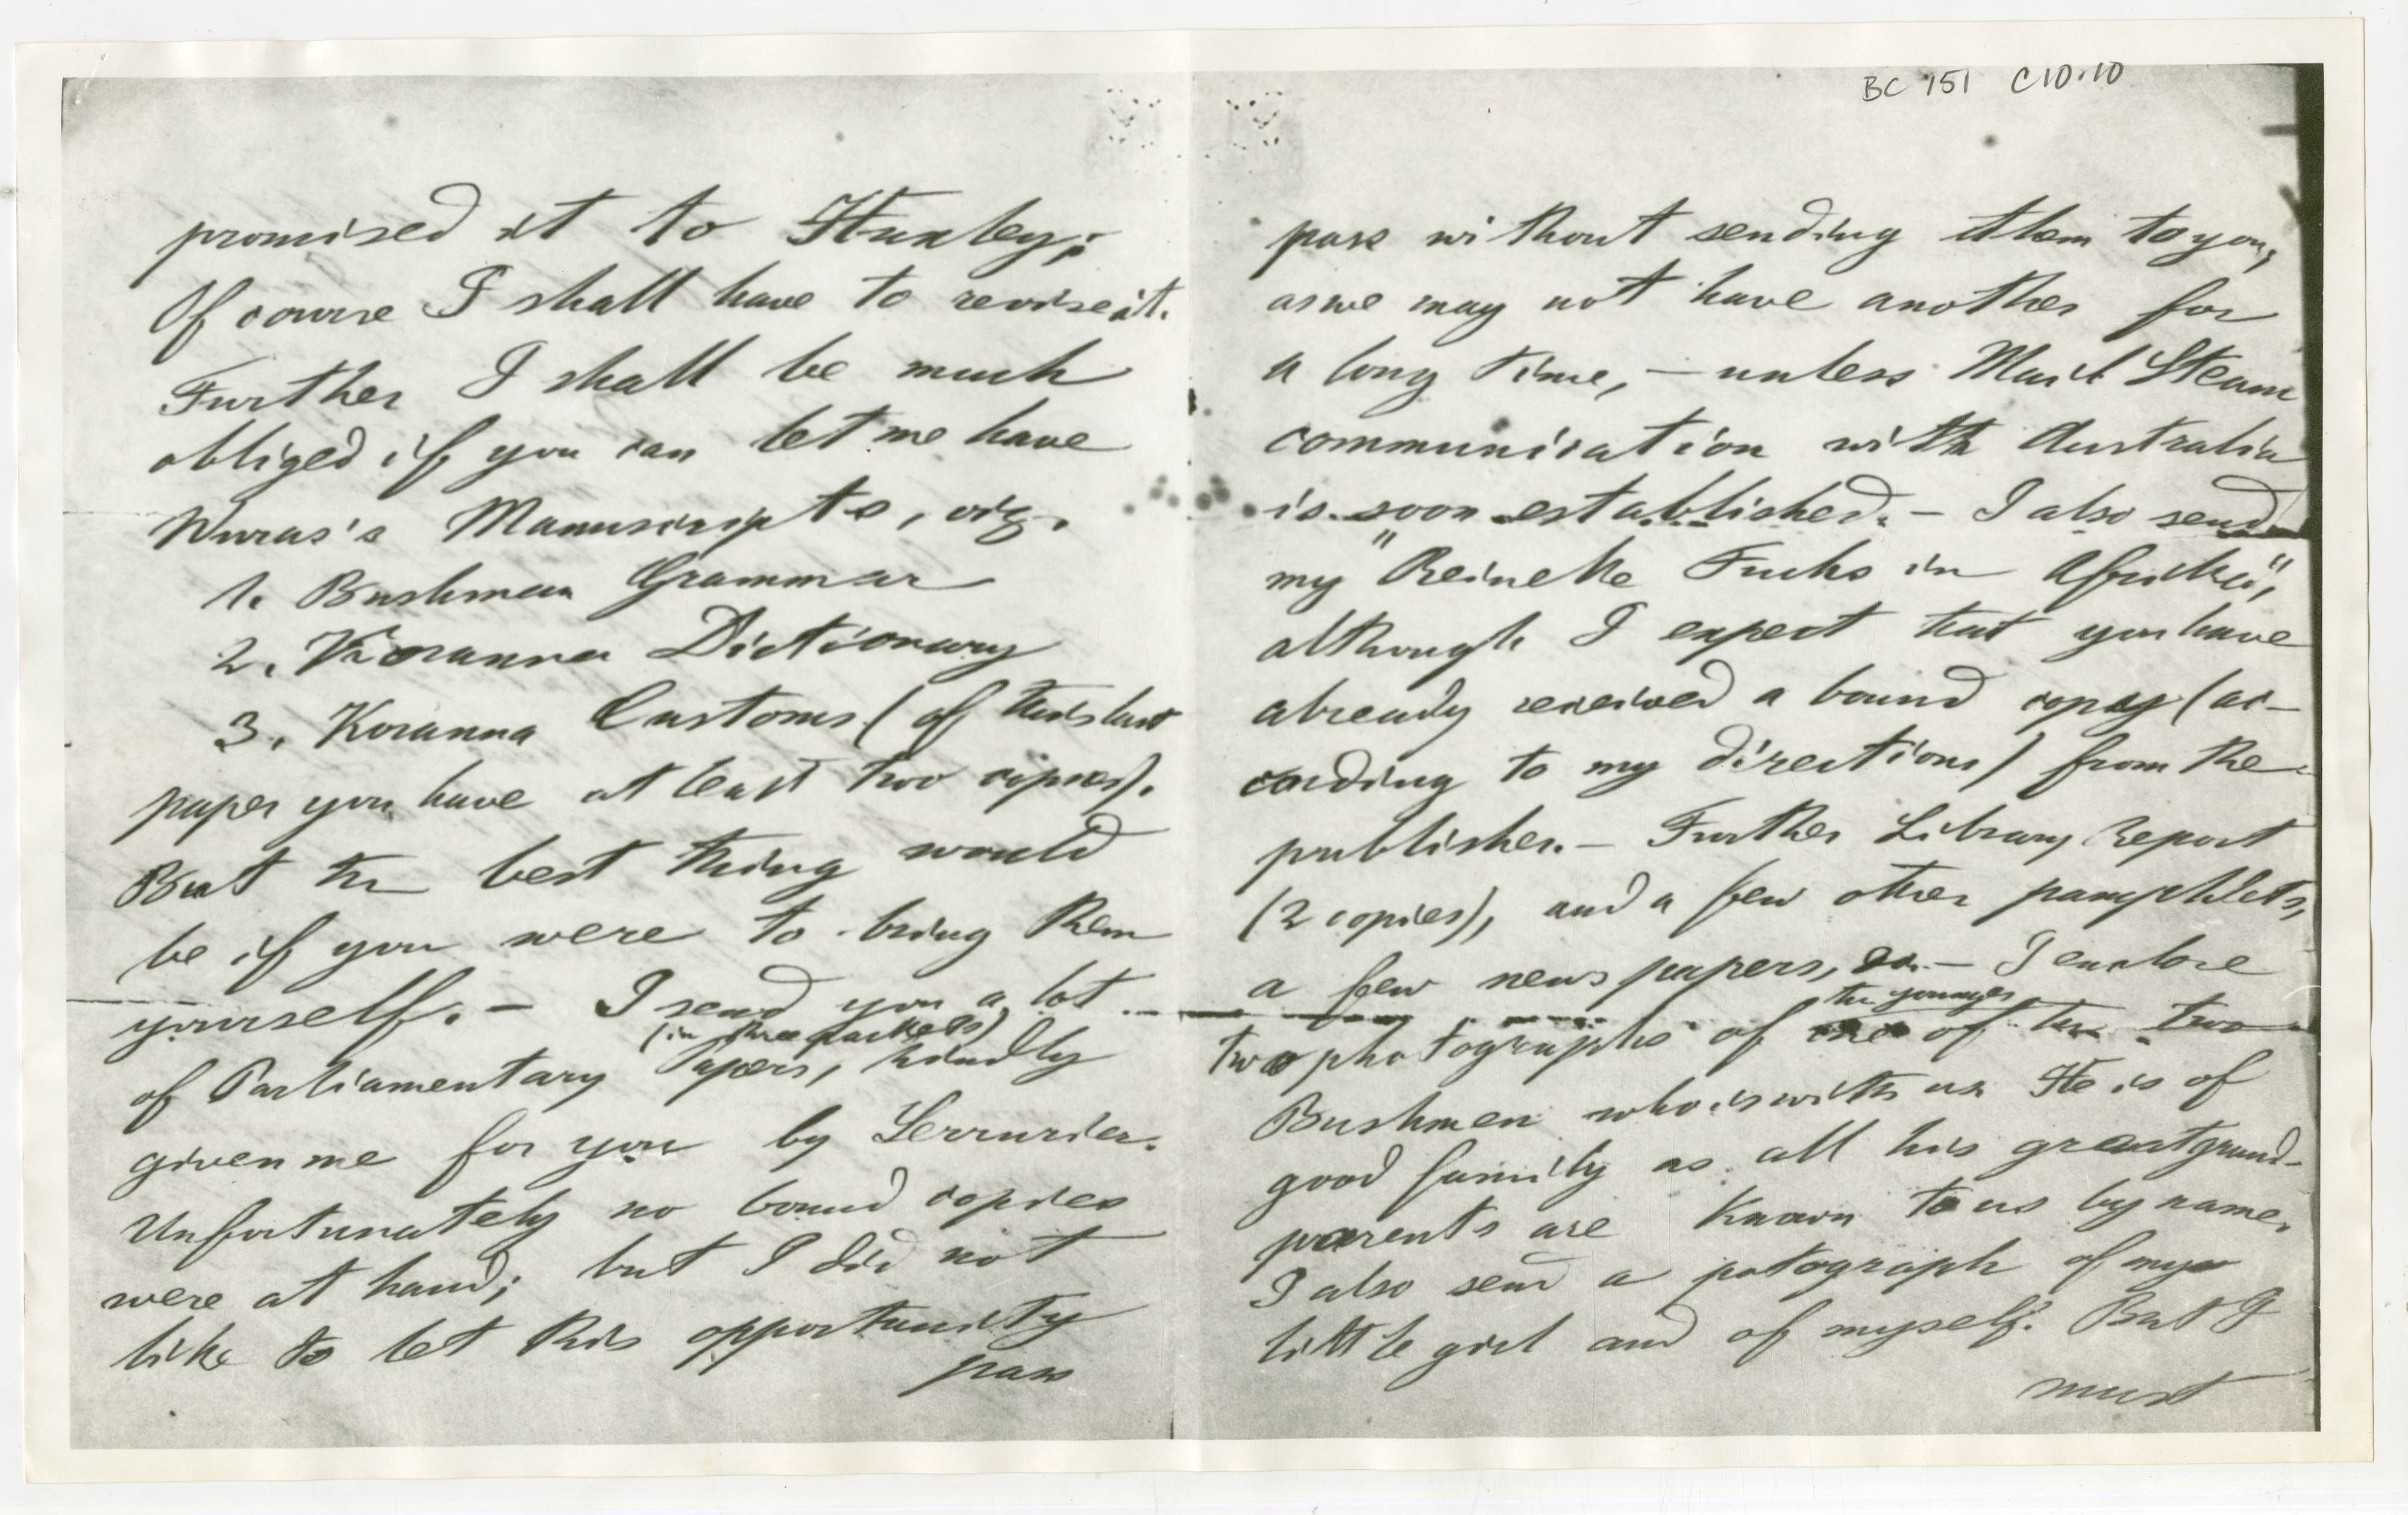 BC 151 C10.10
promised it to Huxley;
Of course I shall have to revise it.
Further I shall be much
obliged if you can let me have
Wuras's Manuscripts, viz.
1. Bushman Grammar
2. Koranna Dictionary
3. Koranna Customs (of this last
paper you have at least two copies).
But the best thing would
be if you were to bring them
yourself. — I send you a lot
(in three packets)
of Parliamentary Papers, kindly
given me for you by Lerrurier.
Unfortunately no bound copies
were at hand; but I did not
like to let this opportunity
pass
pass without sending them to you,
as we may not have another for
a long time, — unless Mail Steam
communication with Australia
is soon established. — I also send
my "Reineke Fuchs in Afrika",
although I expect that you have
already received a bound copy (ac-
cording to my directions) from the
publisher. — Further Library Report
(2 copies), and a few other pamphlets,
a few newspapers, — I enclose
the younger
two photographs of of the two
Bushmen who is with us. He is of
good family as all his greatgrand-
parents are known to us by name.
I also send a potograph of my
little girl and of myself. But I
must